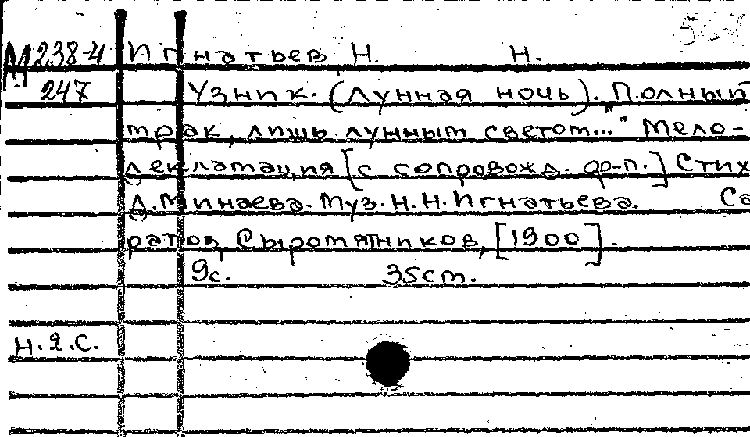 М 238-4 Игнатьев, Н. Н.
247 Узник. (Лунная ночь). "Полный
мрак, лишь лунным светом..." Мело-
декламация [с сопровожд. ф-п.] Стих
Д. Минаева. Муз. Н. Н. Игнатьева. Са
ратов, Сыромятников, [1900].
9с. 35cm.
Н.2.С.